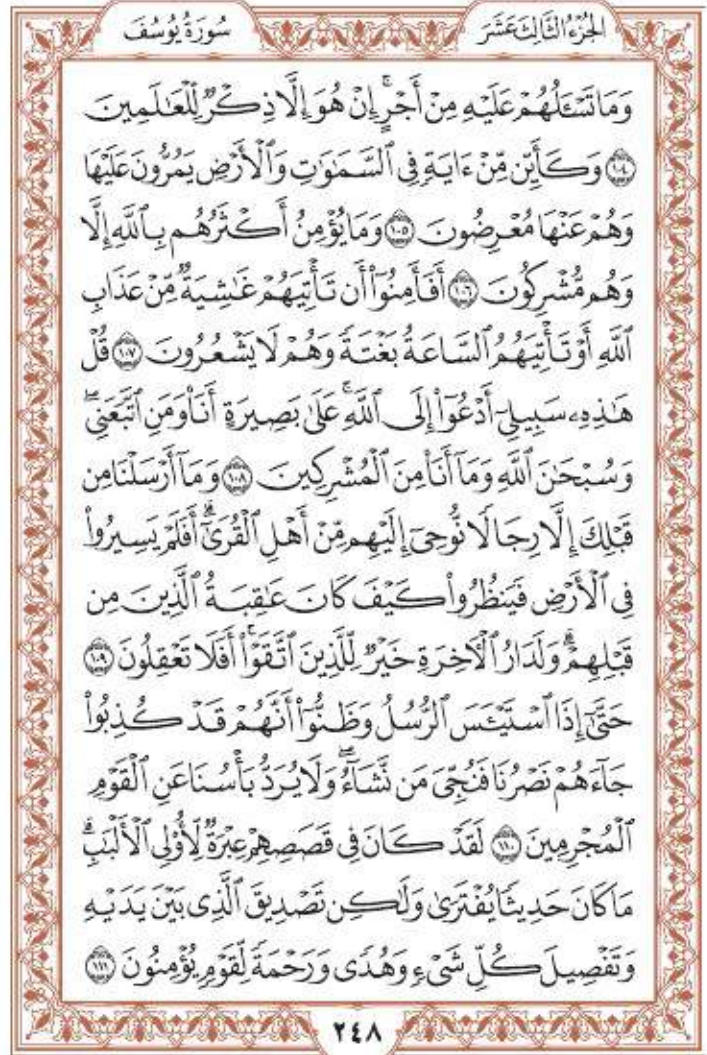 الجُزْءُ الثَّالِثَ عَشَرَ سُورَةُ يُوسُفَ
وَمَا تَسْـَٔلُهُمْ عَلَيْهِ مِنْ أَجْرٍ ۚ إِنْ هُوَ إِلَّا ذِكْرٌ لِّلْعَـٰلَمِينَ
١٠٤ وَكَأَيِّن مِّنْ ءَايَةٍ فِى ٱلسَّمَـٰوَٰتِ وَٱلْأَرْضِ يَمُرُّونَ عَلَيْهَا
وَهُمْ عَنْهَا مُعْرِضُونَ ١٠٥ وَمَا يُؤْمِنُ أَكْثَرُهُم بِٱللَّهِ إِلَّا
وَهُم مُّشْرِكُونَ ١٠٦ أَفَأَمِنُوٓا۟ أَن تَأْتِيَهُمْ غَـٰشِيَةٌ مِّنْ عَذَابِ
ٱللَّهِ أَوْ تَأْتِيَهُمُ ٱلسَّاعَةُ بَغْتَةً وَهُمْ لَا يَشْعُرُونَ ١٠٧ قُلْ
هَـٰذِهِۦ سَبِيلِىٓ أَدْعُوٓا۟ إِلَى ٱللَّهِ ۚ عَلَىٰ بَصِيرَةٍ أَنَا۠ وَمَنِ ٱتَّبَعَنِى ۖ
وَسُبْحَـٰنَ ٱللَّهِ وَمَآ أَنَا۠ مِنَ ٱلْمُشْرِكِينَ ١٠٨ وَمَآ أَرْسَلْنَا مِن
قَبْلِكَ إِلَّا رِجَالًا نُّوحِىٓ إِلَيْهِم مِّنْ أَهْلِ ٱلْقُرَىٰٓ ۗ أَفَلَمْ يَسِيرُوا۟
فِى ٱلْأَرْضِ فَيَنظُرُوا۟ كَيْفَ كَانَ عَـٰقِبَةُ ٱلَّذِينَ مِن
قَبْلِهِمْ ۗ وَلَدَارُ ٱلْـَٔاخِرَةِ خَيْرٌ لِّلَّذِينَ ٱتَّقَوْا۟ ۗ أَفَلَا تَعْقِلُونَ ١٠٩
حَتَّىٰٓ إِذَا ٱسْتَيْـَٔسَ ٱلرُّسُلُ وَظَنُّوٓا۟ أَنَّهُمْ قَدْ كُذِبُوا۟
جَآءَهُمْ نَصْرُنَا فَنُجِّىَ مَن نَّشَآءُ ۖ وَلَا يُرَدُّ بَأْسُنَا عَنِ ٱلْقَوْمِ
ٱلْمُجْرِمِينَ ١١٠ لَقَدْ كَانَ فِى قَصَصِهِمْ عِبْرَةٌ لِّأُو۟لِى ٱلْأَلْبَـٰبِ ۗ
مَا كَانَ حَدِيثًا يُفْتَرَىٰ وَلَـٰكِن تَصْدِيقَ ٱلَّذِى بَيْنَ يَدَيْهِ
وَتَفْصِيلَ كُلِّ شَىْءٍ وَهُدًى وَرَحْمَةً لِّقَوْمٍ يُؤْمِنُونَ ١١١
٢٤٨